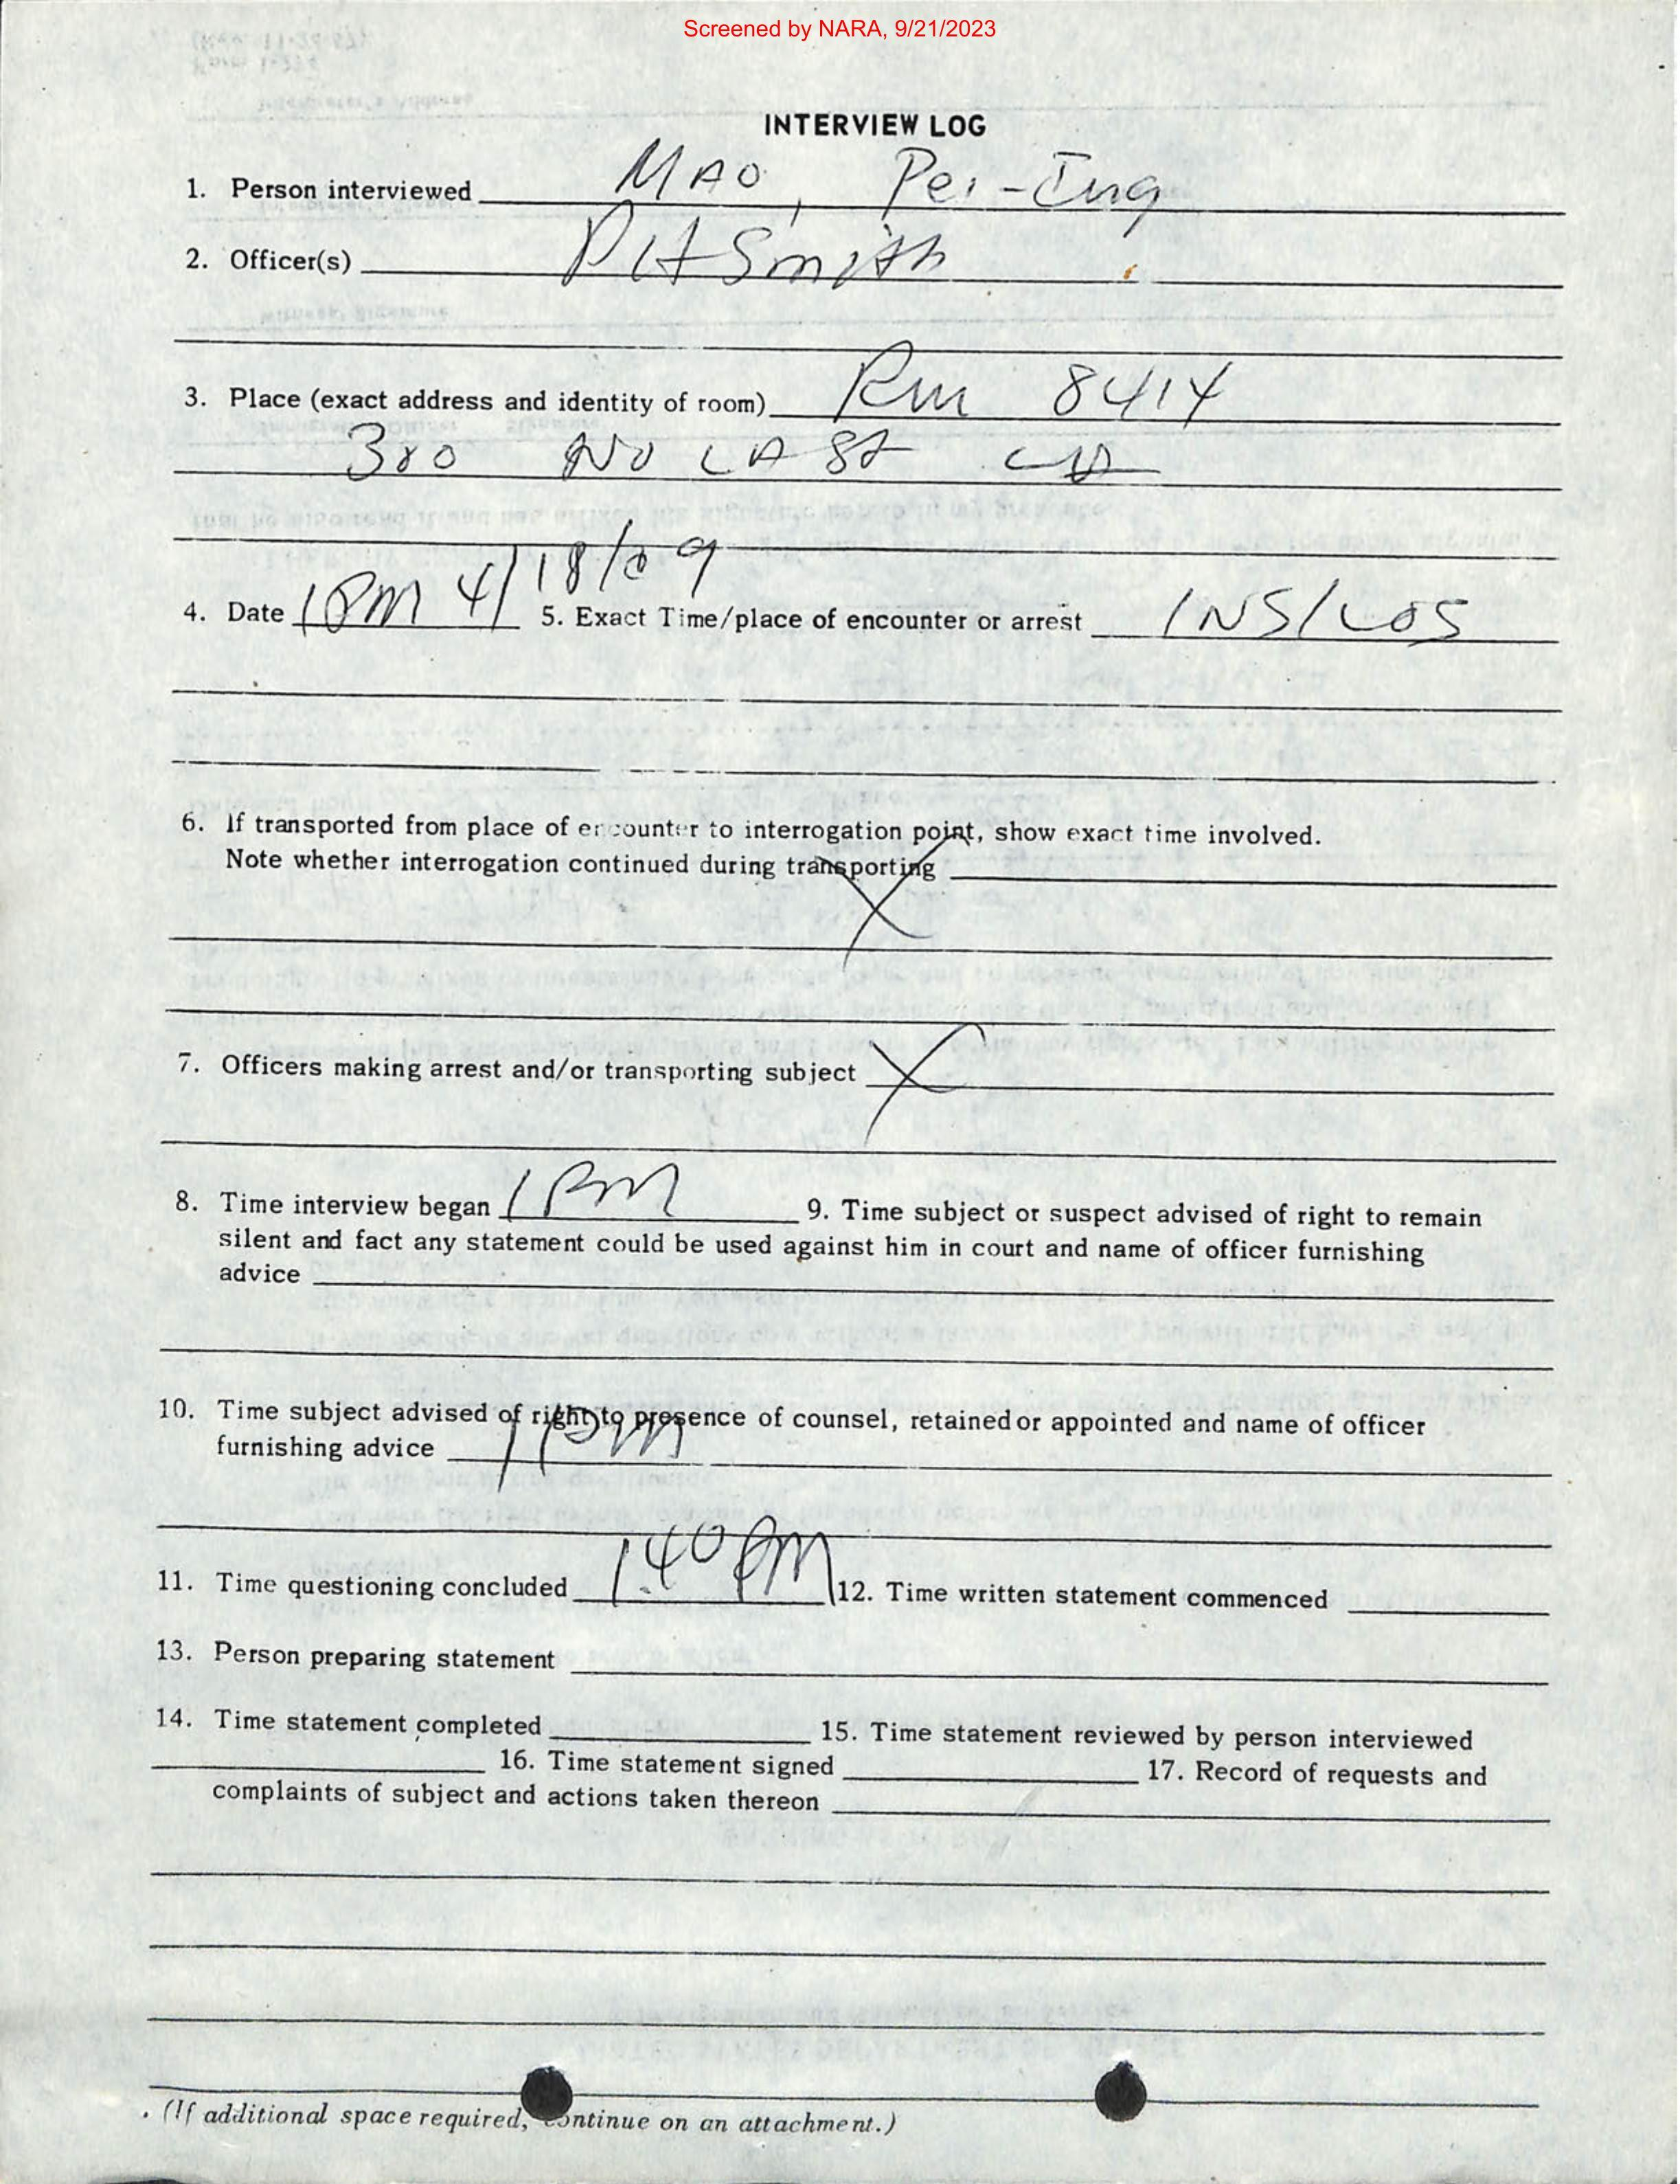 Screened by NARA, 9/21/2023
INTERVIEW LOG
1. Person interviewed MAO, Pei-Ing
2. Officer(s) Smith
3. Place (exact address and identity of room) Rm 8414
300 No LA St LA
4. Date 1PM 4/18/ 5. Exact Time/place of encounter or arrest INS/LOS
6. If transported from place of encounter to interrogation point, show exact time involved.
Note whether interrogation continued during transporting
X
7. Officers making arrest and/or transporting subject X
8. Time interview began 1 PM 9. Time subject or suspect advised of right to remain
silent and fact any statement could be used against him in court and name of officer furnishing
advice
10. Time subject advised of right to presence of counsel, retained or appointed and name of officer
furnishing advice 1 PM
11. Time questioning concluded 1.40 PM 12. Time written statement commenced
13. Person preparing statement
14. Time statement completed 15. Time statement reviewed by person interviewed
16. Time statement signed 17. Record of requests and
complaints of subject and actions taken thereon
(If additional space required, continue on an attachment.)